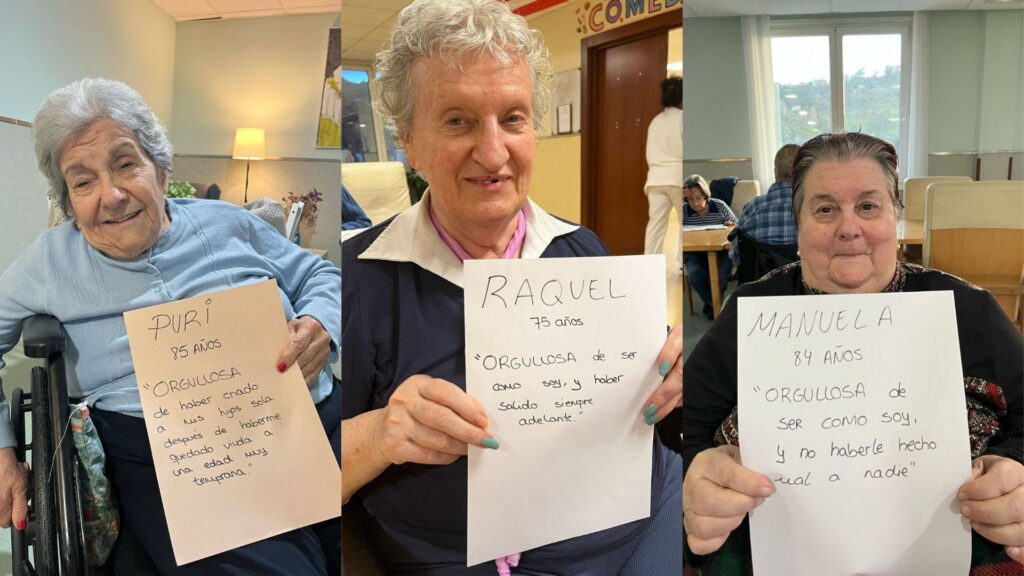 PURI
85 AÑOS
"ORGULLOSA
de haber criado
a mis hijos sola
despues de haberme
quedado viuda a
una edad muy
temprana"
COMED
RAQUEL
75 años
"ORGULLOSA de ser
como soy, y haber
salido siempre
adelante."
MANUELA
84 AÑOS
"ORGULLOSA de
ser como soy,
y no haberle hecho
ual a nadie"